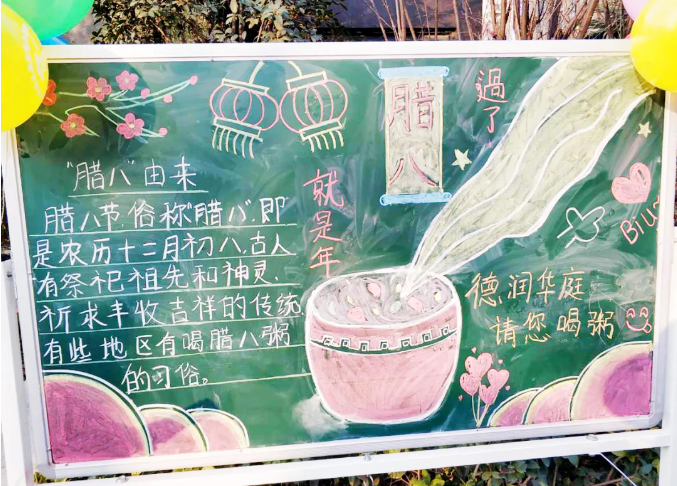 "腊八"由来
腊八节,俗称"腊八",即
是农历十二月初八,古人
有祭祀祖先和神灵、
祈求丰收吉祥的传统,
有些地区有喝腊八粥
的习俗。
腊八
過了
就是年
德润华庭
请您喝粥